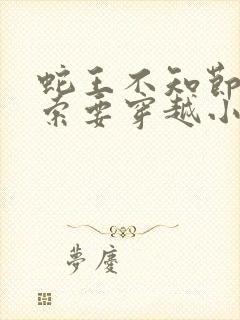 蛇王不知節
索要穿越小
夢慶